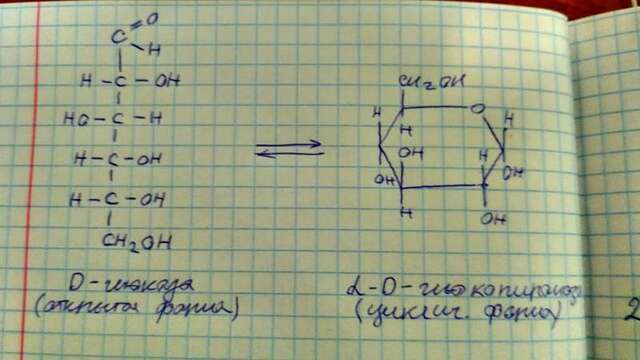 C=O
H
H-C-OH
HO-C-H
H-C-OH
H-C-OH
CH2OH
CH2OH
O
H
H
H
OH
H
OH
OH
H
OH
D-глюкоза
(открытая форма)
α-D-глюкопираноза
(циклич. форма)
2